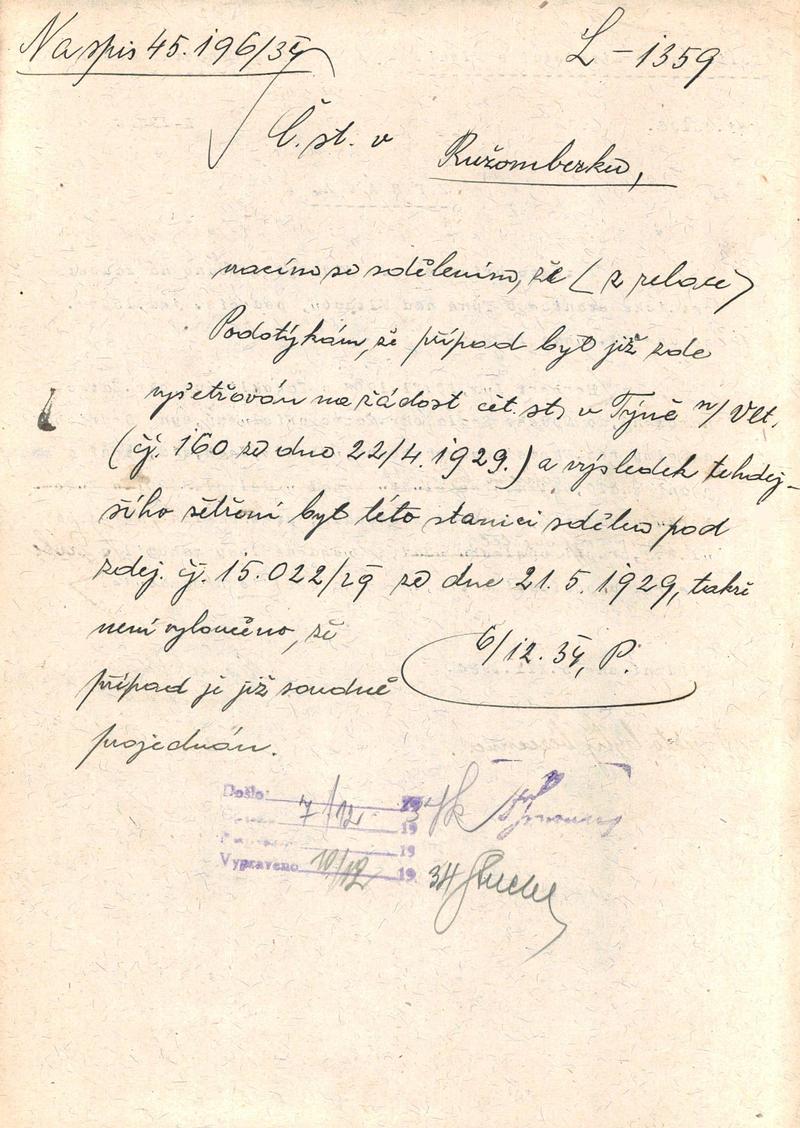 Na spis 45.196/34
L-1359
Č. st. v Ružomberku,
vracím se sdělením, že (z relace)
Podotýkám, že případ byl již zde
vyšetřován na žádost čet. st. v Týně n/Vlt.
(čj. 160 ze dne 22/4. 1929.) a výsledek tehdej-
šího šetření byl této stanici sdělen pod
zdej. čj. 15.022/29 ze dne 21.5.1929, takže
není vyloučeno, že
případ je již soudně
projednán.
6/12. 34, P.
Došlo: 7/12. 1934
19
19
Vypraveno 10/12 1934